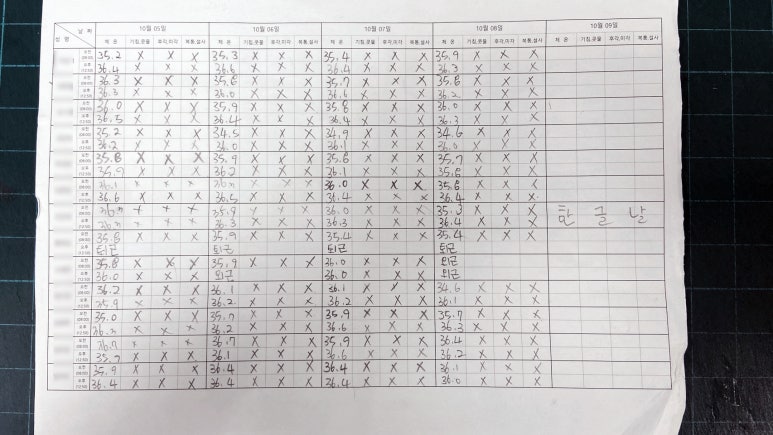 날 짜 10월 05일 10월 06일 10월 07일 10월 08일 10월 09일
성 명 체 온 기침,콧물 후각,미각 복통,설사 체 온 기침,콧물 후각,미각 복통,설사 체 온 기침,콧물 후각,미각 복통,설사 체 온 기침,콧물 후각,미각 복통,설사 체 온 기침,콧물 후각,미각 복통,설사
오전 (08:00) 35.2 X X X 35.3 X X X 35.4 X X X 35.9 X X X
오후 (12:50) 36.4 X X X 36.6 X X X 36.4 X X X 36.3 X X X
오전 (08:00) 36.3 X X X 35.6 X X X 35.7 X X X 35.8 X X X
오후 (12:50) 36.3 X X X 36.0 X X X 36.6 X X X 36.2 X X X
오전 (08:00) 36.0 X X X 35.9 X X X 35.8 X X X 36.0 X X X
오후 (12:50) 36.5 X X X 36.4 X X X 36.4 X X X 36.3 X X X
오전 (08:00) 35.2 X X X 34.5 X X X 34.9 X X X 34.6 X X X
오후 (12:50) 36.2 X X X 36.0 X X X 36.1 X X X 36.0 X X X
오전 (08:00) 35.8 X X X 35.9 X X X 35.6 X X X 35.7 X X X
오후 (12:50) 35.9 X X X 36.2 X X X 36.1 X X X 35.8 X X X
오전 (08:00) 36.1 X X X 36.7 X X X 36.0 X X X 35.8 X X X
오후 (12:50) 36.6 X X X 36.5 X X X X X X 36.4 X X X
오전 (08:00) 36.7 X X X 35.9 X X X 36.0 X X X 35.3 X X X 한 글 날
오후 (12:50) 36.7 X X X 36.3 X X X 36.3 X X X 36.4 X X X
오전 (08:00) 35.8 X X X 35.9 X X X 35.4 X X X 35.4 X X X
오후 (12:50) 퇴근 퇴근 퇴근 퇴근
오전 (08:00) 35.8 X X X 35.9 X X X 36.0 X X X 외근
오후 (12:50) 36.0 X X X 외근 36.0 X X X 외근
오전 (08:00) 36.2 X X X 36.1 X X X 36.1 X X X 34.6 X X X
오후 (12:50) 35.9 X X X 36.2 X X X 36.2 X X X 36.1 X X X
오전 (08:00) 35.0 X X X 35.7 X X X 35.9 X X X 35.7 X X X
오후 (12:50) 36.7 X X X 36.2 X X X 36.6 X X X 36.3 X X X
오전 (08:00) 36.7 X X X 36.7 X X X 35.9 X X X 36.4 X X X
오후 (12:50) 35.7 X X X 36.1 X X X 36.6 X X X 36.2 X X X
오전 (08:00) 35.9 X X X 36.4 X X X 36.4 X X X 36.1 X X X
오후 (12:50) 36.4 X X X 36.4 X X X 36.4 X X X 36.0 X X X